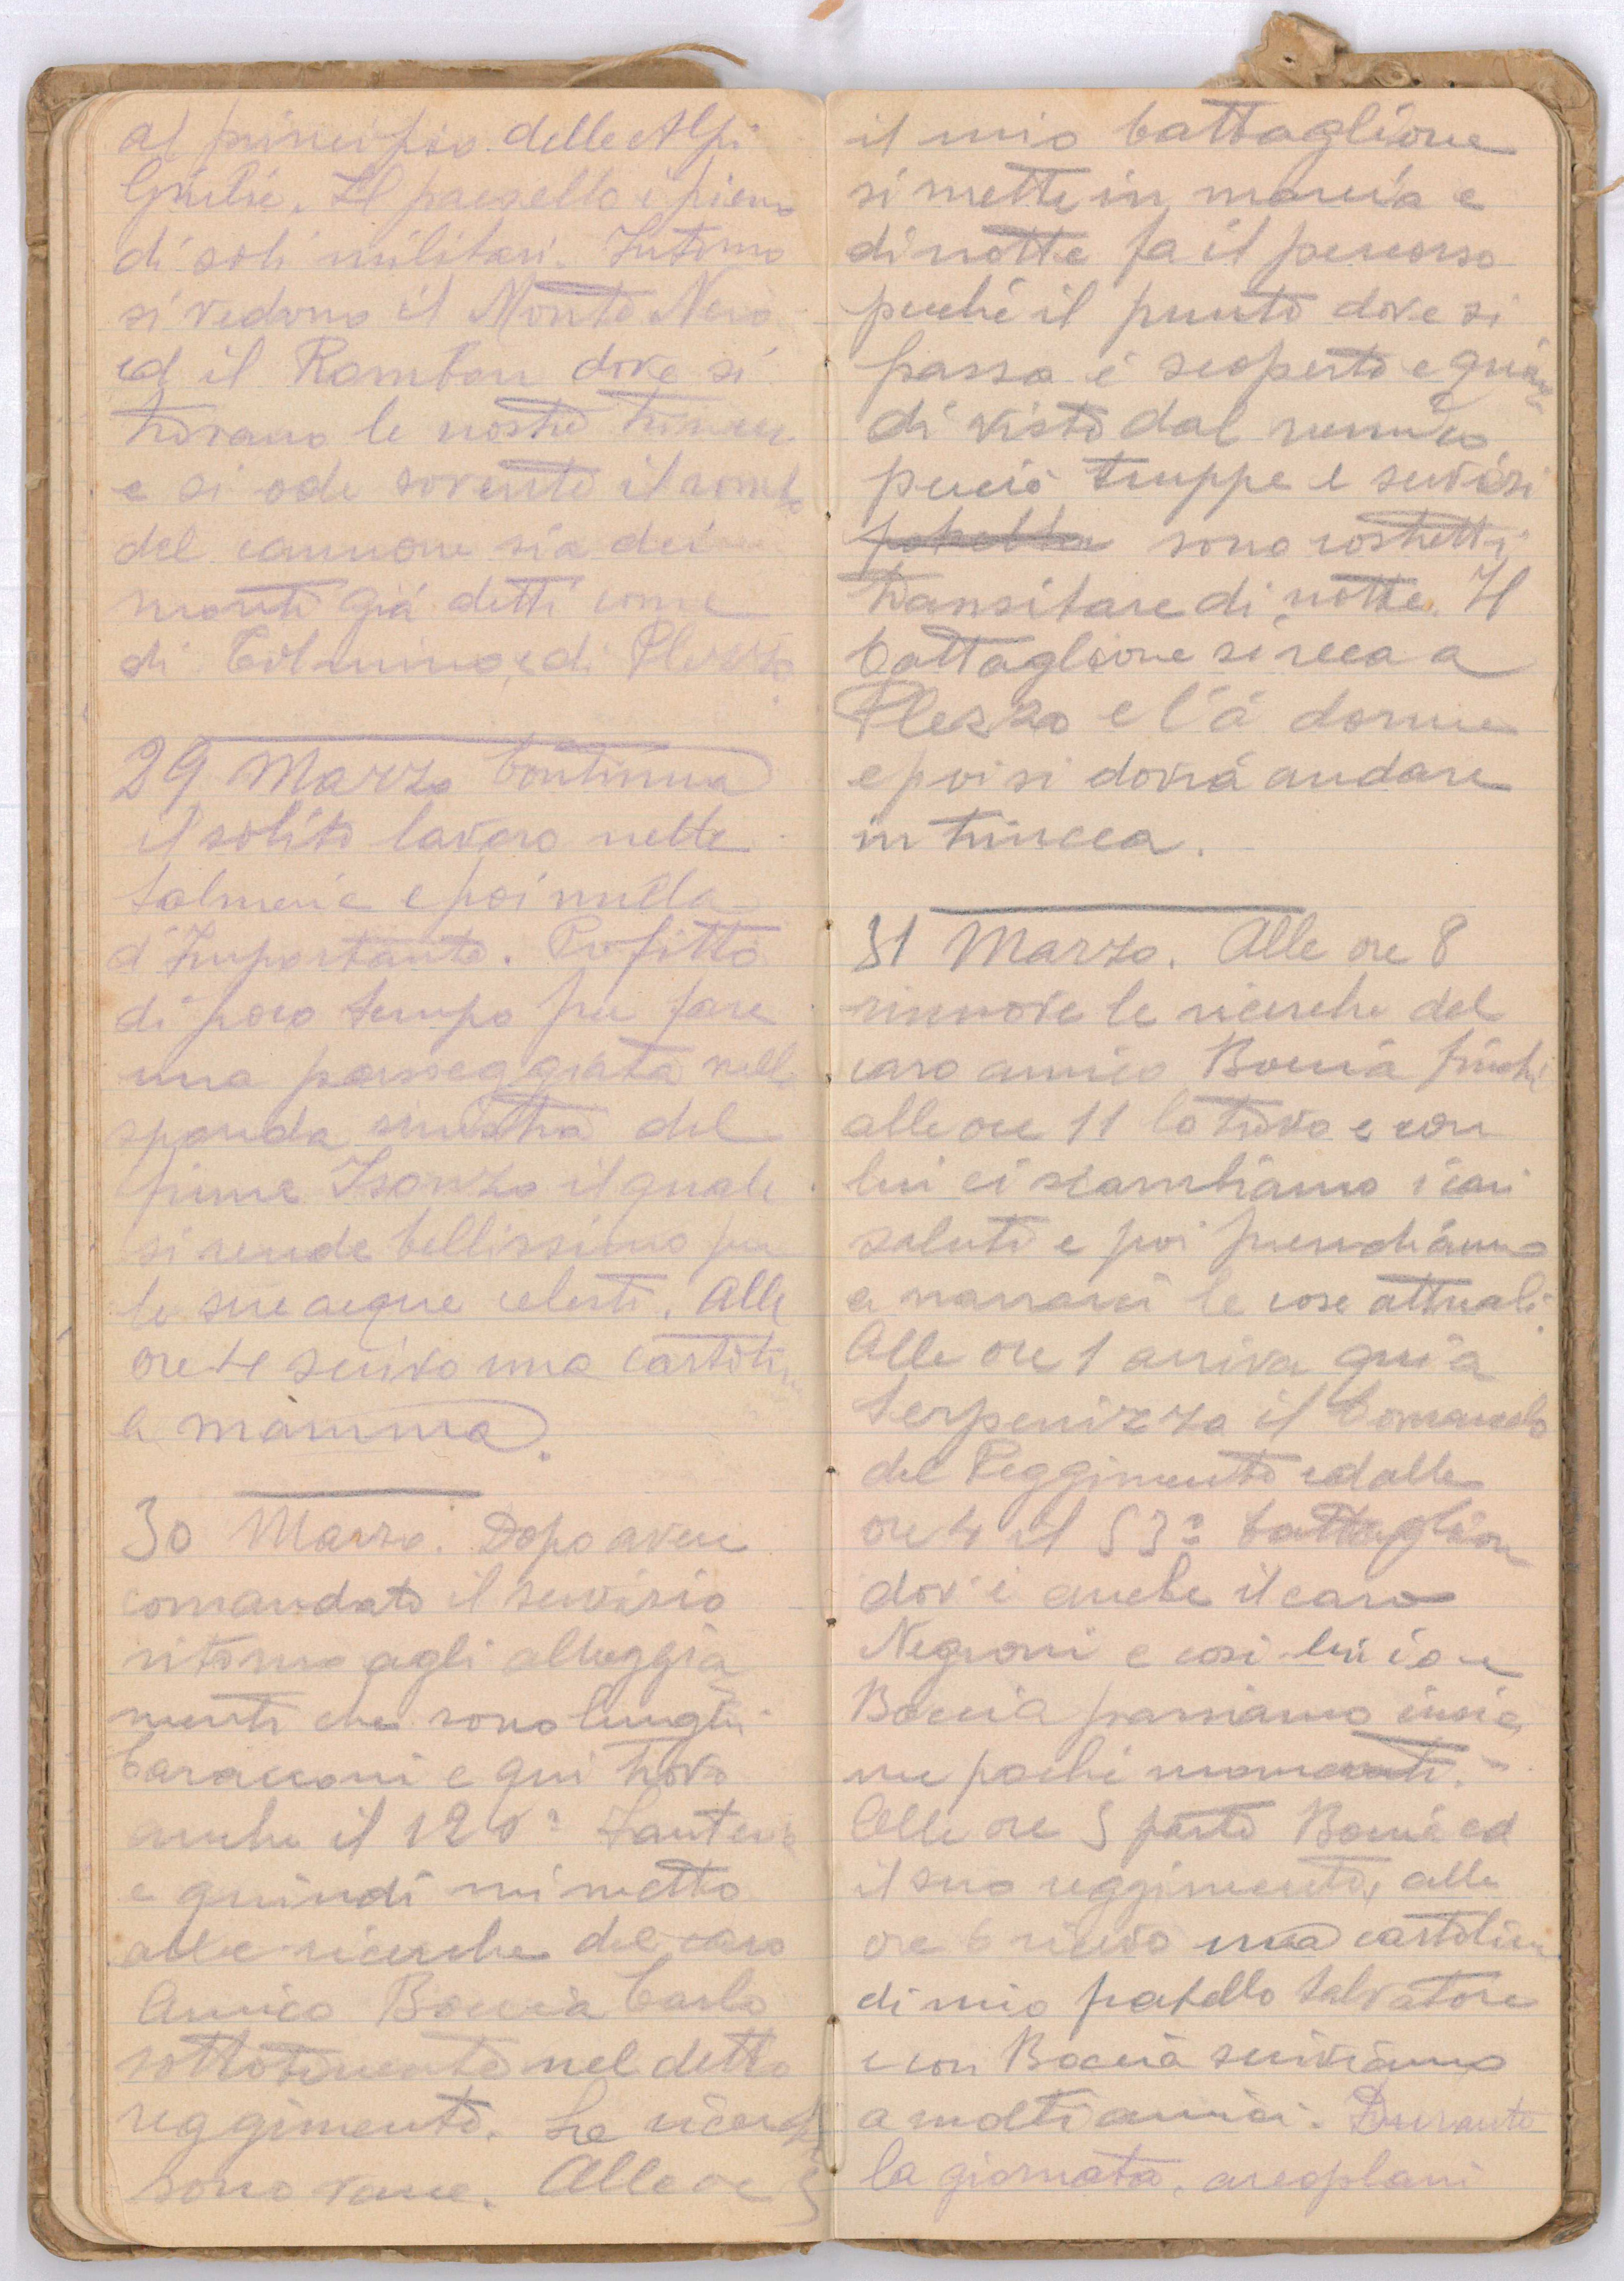 al principio delle Alpi
Giulie. Il paesello è pieno
di soli militari. Intorno
si vedono il Monte Nero
ed il Rombon dove si
trovano le nostre trincee
e si ode sovente il rombo
del cannone sia dei
monti già detti come
di Tolmino e di Plezzo
29 Marzo Continua
il solito lavoro nelle
salmerie e poi nulla
d'Importante. Profitto
di poco tempo per fare
una passeggiata nella
sponda sinistra del
fiume Isonzo il quale
si rende bellissimo per
le sue acque celesti. Alle
ore 4 scrivo una cartolina
a mamma.
30 Marzo. Dopo avere
comandato il servizio
ritorno agli alloggia
menti che sono lunghi
baracconi e qui trovo
anche il 120° fanteria
e quindi mi metto
alle ricerche del caro
Amico Boccia Carlo
sottotenente nel detto
reggimento. Le ricerche
sono vane. Alle ore 5
il mio battaglione
si mette in marcia e
di notte fa il percorso
perché il punto dove si
passa è scoperto e quin
di visto dal nemico
perciò truppe e servizi
sono costretti
transitare di notte. Il
battaglione si reca a
Plezzo e l'à dorme
e poi si dovrà andare
in trincea.
31 Marzo. Alle ore 8
rinnovo le ricerche del
caro amico Boccia finché
alle ore 11 lo trovo e con
lui ci scambiamo i cari
saluti e poi prendiamo
a narrarci le cose attuali.
Alle ore 1 arriva qui a
Serpenizza il Comando
del Reggimento ed alle
ore 4 il 53° battaglion
dov'è anche il caro
Negroni e così lui io e
Boccia passiamo insie
me pochi momenti.
Alle ore 5 parte Boccia ed
il suo reggimento, alle
ore 6 ricevo una cartolina
di mio fratello Salvatore
e con Boccia scriviamo
a molti amici. Durante
la giornata, areoplani